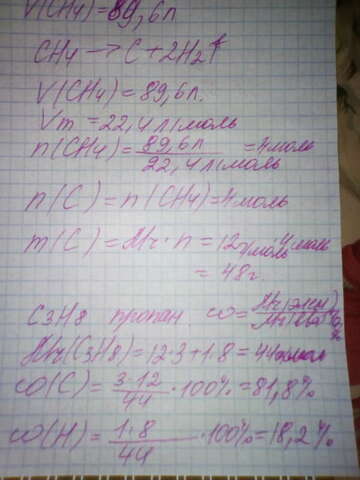 V(CH4)=89,6л
CH4 → C + 2H2↑
V(CH4) = 89,6л.
Vm = 22,4 л/моль
n(CH4) = 89,6л / 22,4 л/моль = 4моль
n(C) = n(CH4) = 4моль
m(C) = Mr · n = 12 г/моль · 4 моль
= 48г.
C3H8 пропан. ω =
Mr(C3H8) = 12·3+1·8 = 44
ω(C) = 3·12 / 44 · 100% = 81,8%
ω(H) = 1·8 / 44 · 100% = 18,2%